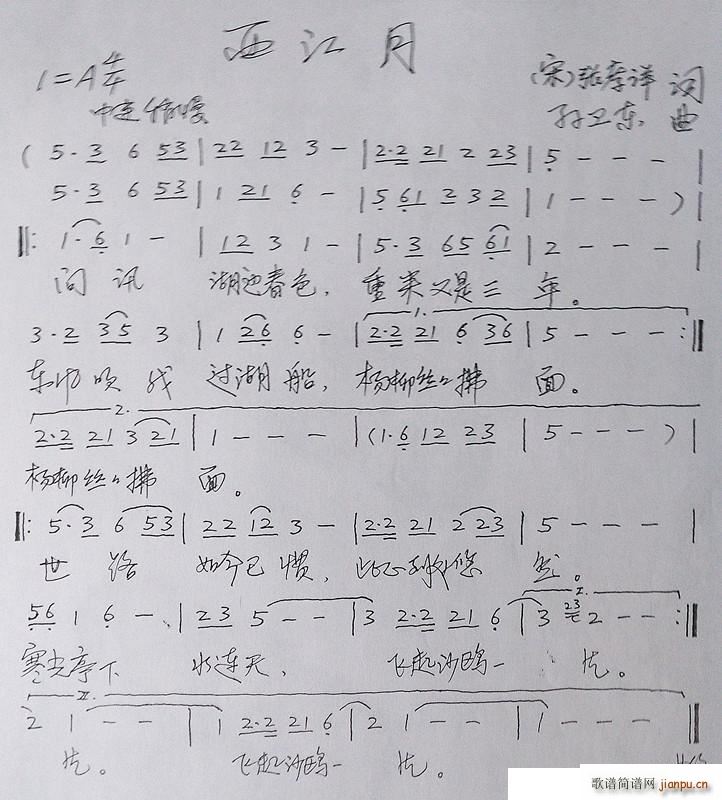 西江月
1=A 4/4
中速稍慢
(宋)张孝祥 词
孙卫东 曲
( 5·3 6 53 | 22 12 3 - | 2·2 21 2 23 | 5 - - - |
5·3 6 53 | 1 21 6 - | 5 61 2 3 2 | 1 - - - ) |
‖: 1·6 1 - | 12 3 1 - | 5·3 65 61 | 2 - - - |
问讯 湖边春色, 重来又是三 年。
1.
3·2 35 3 | 1 26 6 - | 2·2 21 6 36 | 5 - - - :‖
东风吹我 过湖船, 杨柳丝丝拂 面。
2.
2·2 21 3 21 | 1 - - - | (1·6 12 23 | 5 - - - ) |
杨柳丝丝拂 面。
‖: 5·3 6 53 | 22 12 3 - | 2·2 21 2 23 | 5 - - - |
世路 如今已惯, 此心到处悠 然。
I.
56 1 6 - | 23 5 - - | 3 2·2 21 6 | 3 23 2 - - :‖
寒光亭下 水连天, 飞起沙鸥一 片。
II.
2 1 - - | 1 2·2 21 6 | 2 1 - - | 1 - - - ‖
片。 飞起沙鸥一 片。
歌谱简谱网 jianpu.cn